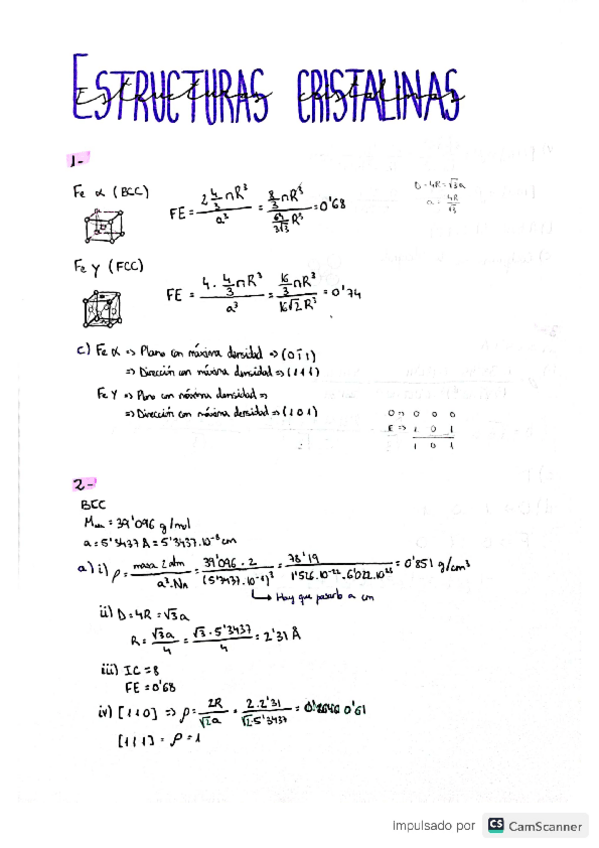 ESTRUCTURAS CRISTALINAS
Estructuras cristalinas
1-
Fe α (BCC)
FE = 2 4/3 πR³ / a³ = 8/3 πR³ / 64/3√3 R³ = 0'68
D = 4R = √3a
a = 4R/√3
Fe γ (FCC)
FE = 4 · 4/3 πR³ / a³ = 16/3 πR³ / 16√2 R³ = 0'74
c) Fe α => Plano con máxima densidad => (0 1̄ 1)
=> Dirección con máxima densidad => (1 1 1)
Fe γ => Plano con máxima densidad =>
=> Dirección con máxima densidad => (1 0 1)
O => 0 0 0
E => 1 0 1
1 0 1
2-
BCC
= 39'096 g/mol
a = 5'3437 Å = 5'3437·10⁻⁸ cm
a) i) ρ = masa 2 atm / a³·NA = 39'096 · 2 / (5'3437·10⁻⁸)³ = 78'19 / 1'526·10⁻²²·6'022·10²³ = 0'851 g/cm³
Hay que pasarlo a cm
ii) D = 4R = √3a
R = √3a / 4 = √3 · 5'3437 / 4 = 2'31 Å
iii) IC = 8
FE = 0'68
iv) [1 1 0] => ρ = 2R / √2a = 2·2'31 / √2·5'3437 = 0'61
[1 1 1] = ρ = 1
Impulsado por CS CamScanner